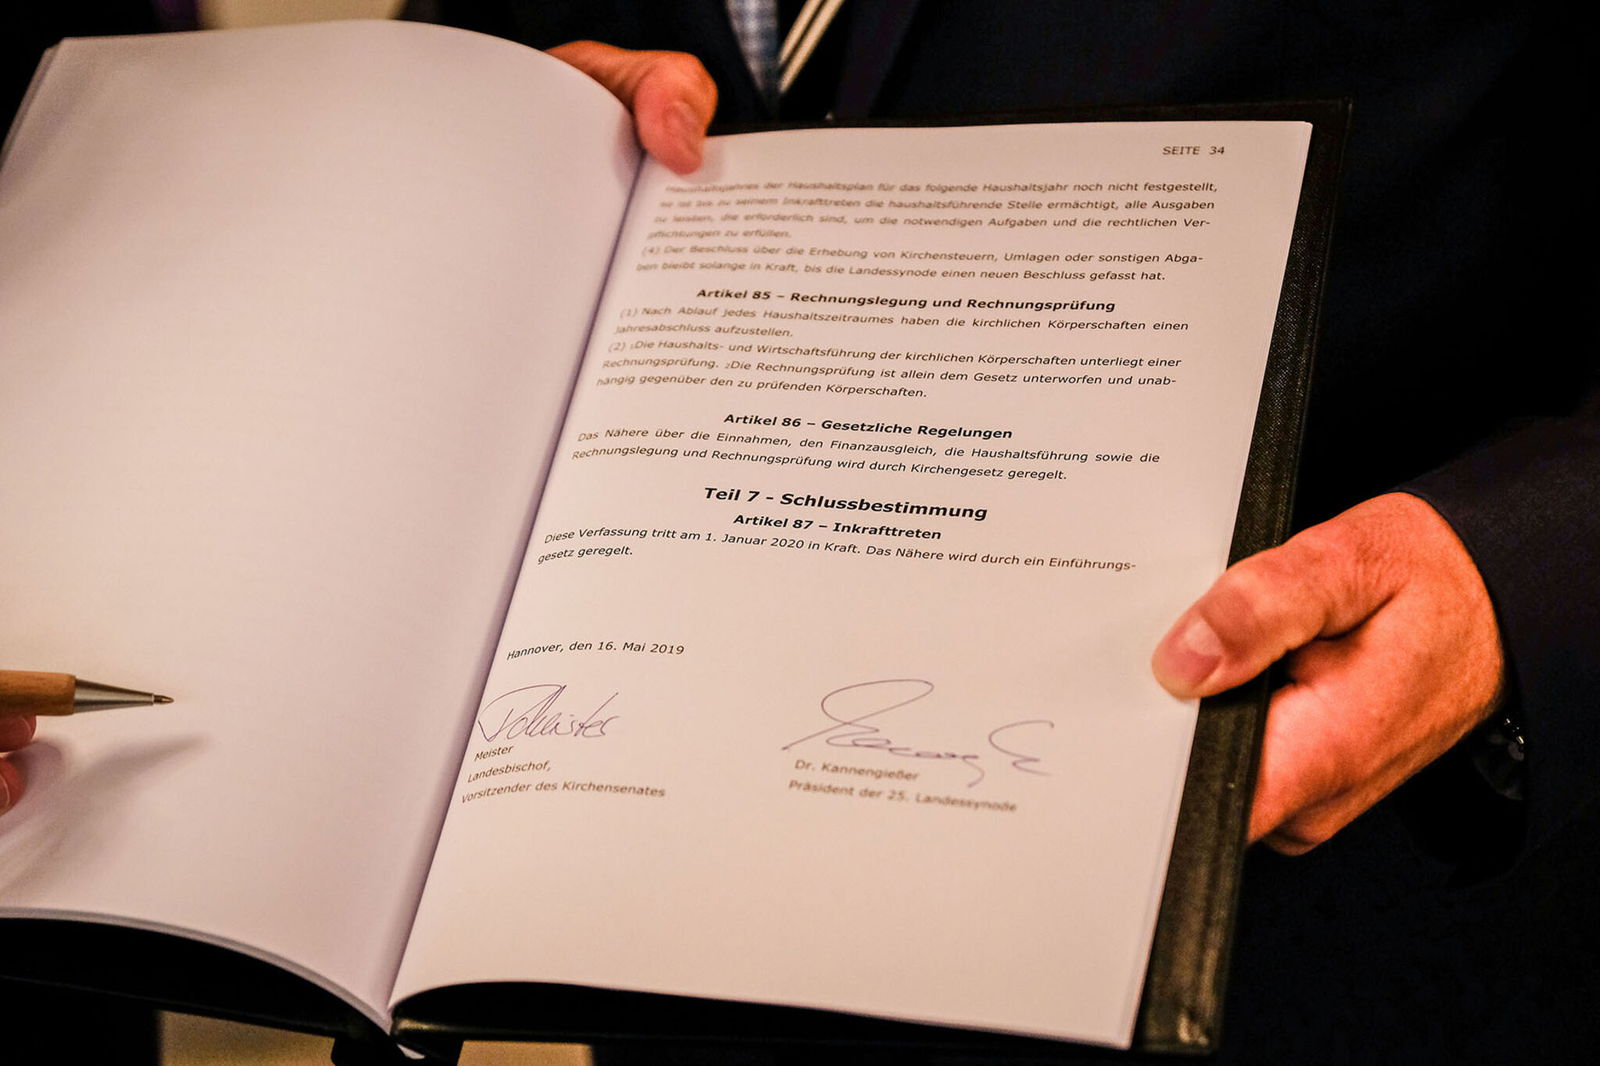 SEITE 34
Haushaltsjahres der Haushaltsplan für das folgende Haushaltsjahr noch nicht festgestellt,
so ist bis zu seinem Inkrafttreten die haushaltsführende Stelle ermächtigt, alle Ausgaben
zu leisten, die erforderlich sind, um die notwendigen Aufgaben und die rechtlichen Ver-
pflichtungen zu erfüllen.
(4) Der Beschluss über die Erhebung von Kirchensteuern, Umlagen oder sonstigen Abga-
ben bleibt solange in Kraft, bis die Landessynode einen neuen Beschluss gefasst hat.
Artikel 85 – Rechnungslegung und Rechnungsprüfung
(1) Nach Ablauf jedes Haushaltszeitraumes haben die kirchlichen Körperschaften einen
Jahresabschluss aufzustellen.
(2) 1Die Haushalts- und Wirtschaftsführung der kirchlichen Körperschaften unterliegt einer
Rechnungsprüfung. 2Die Rechnungsprüfung ist allein dem Gesetz unterworfen und unab-
hängig gegenüber den zu prüfenden Körperschaften.
Artikel 86 – Gesetzliche Regelungen
Das Nähere über die Einnahmen, den Finanzausgleich, die Haushaltsführung sowie die
Rechnungslegung und Rechnungsprüfung wird durch Kirchengesetz geregelt.
Teil 7 - Schlussbestimmung
Artikel 87 – Inkrafttreten
Diese Verfassung tritt am 1. Januar 2020 in Kraft. Das Nähere wird durch ein Einführungs-
gesetz geregelt.
Hannover, den 16. Mai 2019
Meister
Landesbischof,
Vorsitzender des Kirchensenates
Dr. Kannengießer
Präsident der 25. Landessynode